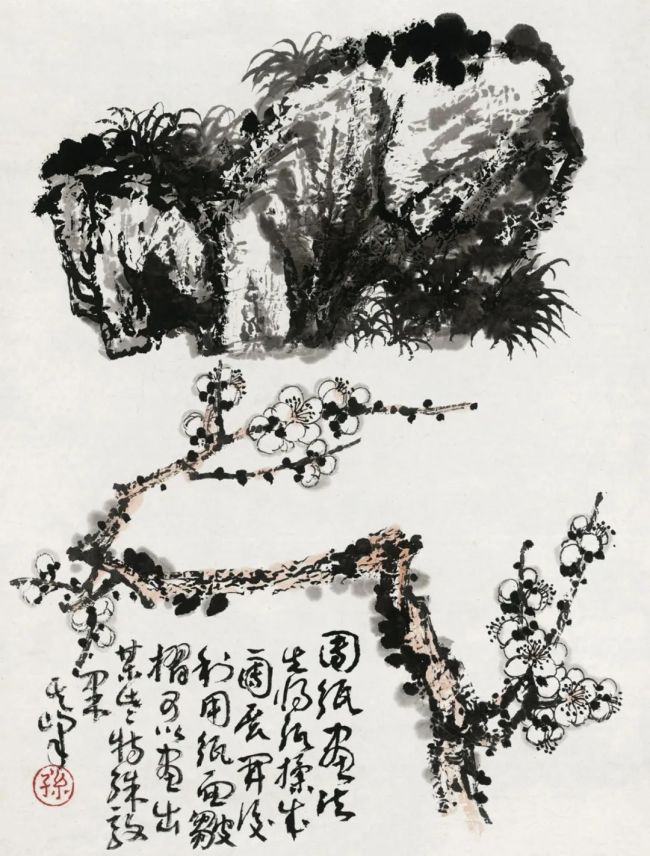 團紙畫法
先將紙揉成
團展開後
利用紙面皺
摺可以畫出
某些特殊效
果
其峰
孫